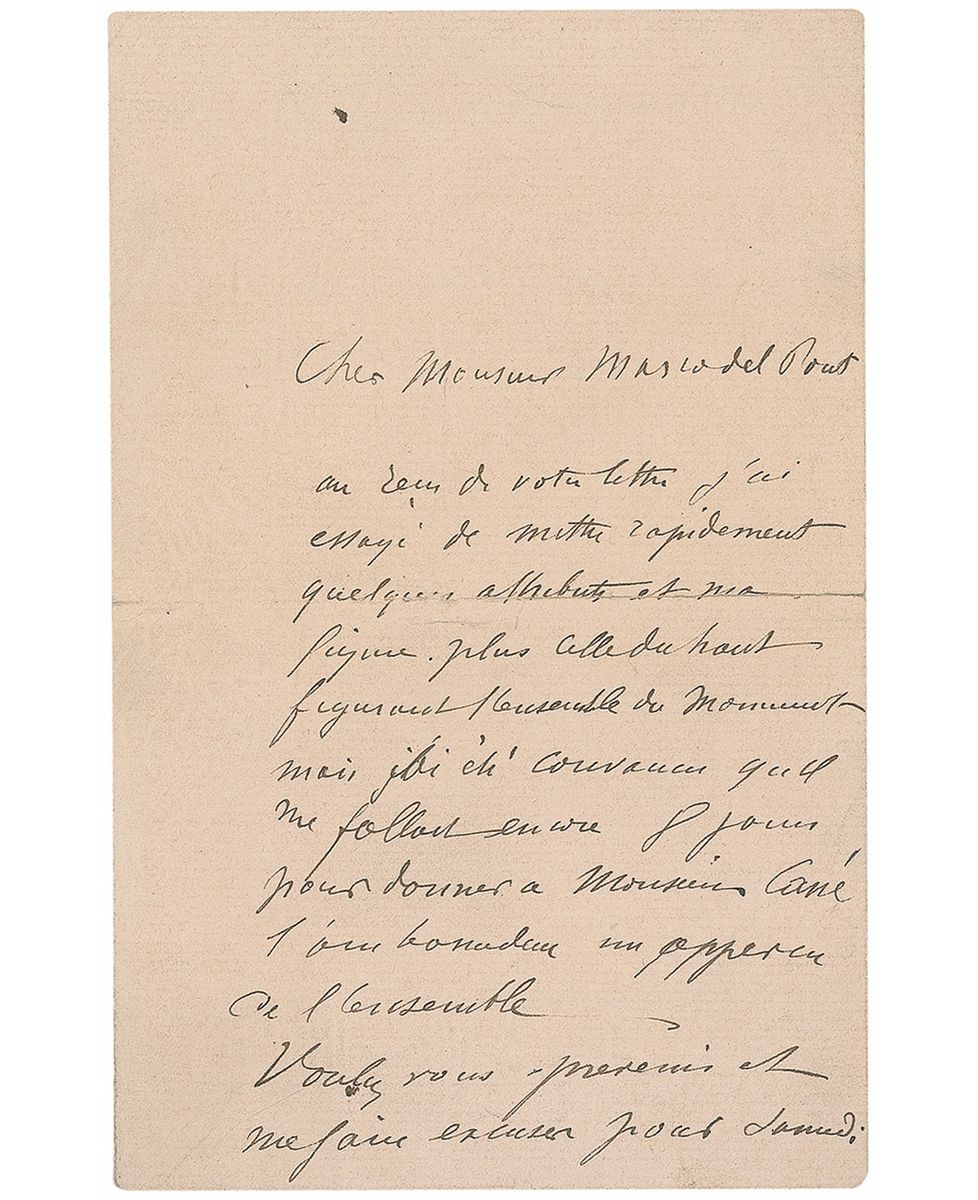 Cher Monsieur Marco del Pont
au reçu de votre lettre j'ai
essayé de mettre rapidement
quelques attributs et ma
figure. plus celle du haut
figurant l'ensemble du Monument
mais j'ai été convaincu qu'il
me fallait encore 8 jours
pour donner a Monsieur Cané
l'ambassadeur un apperçu
de l'ensemble
Voulez vous prevenir et
me faire excuser pour samedi